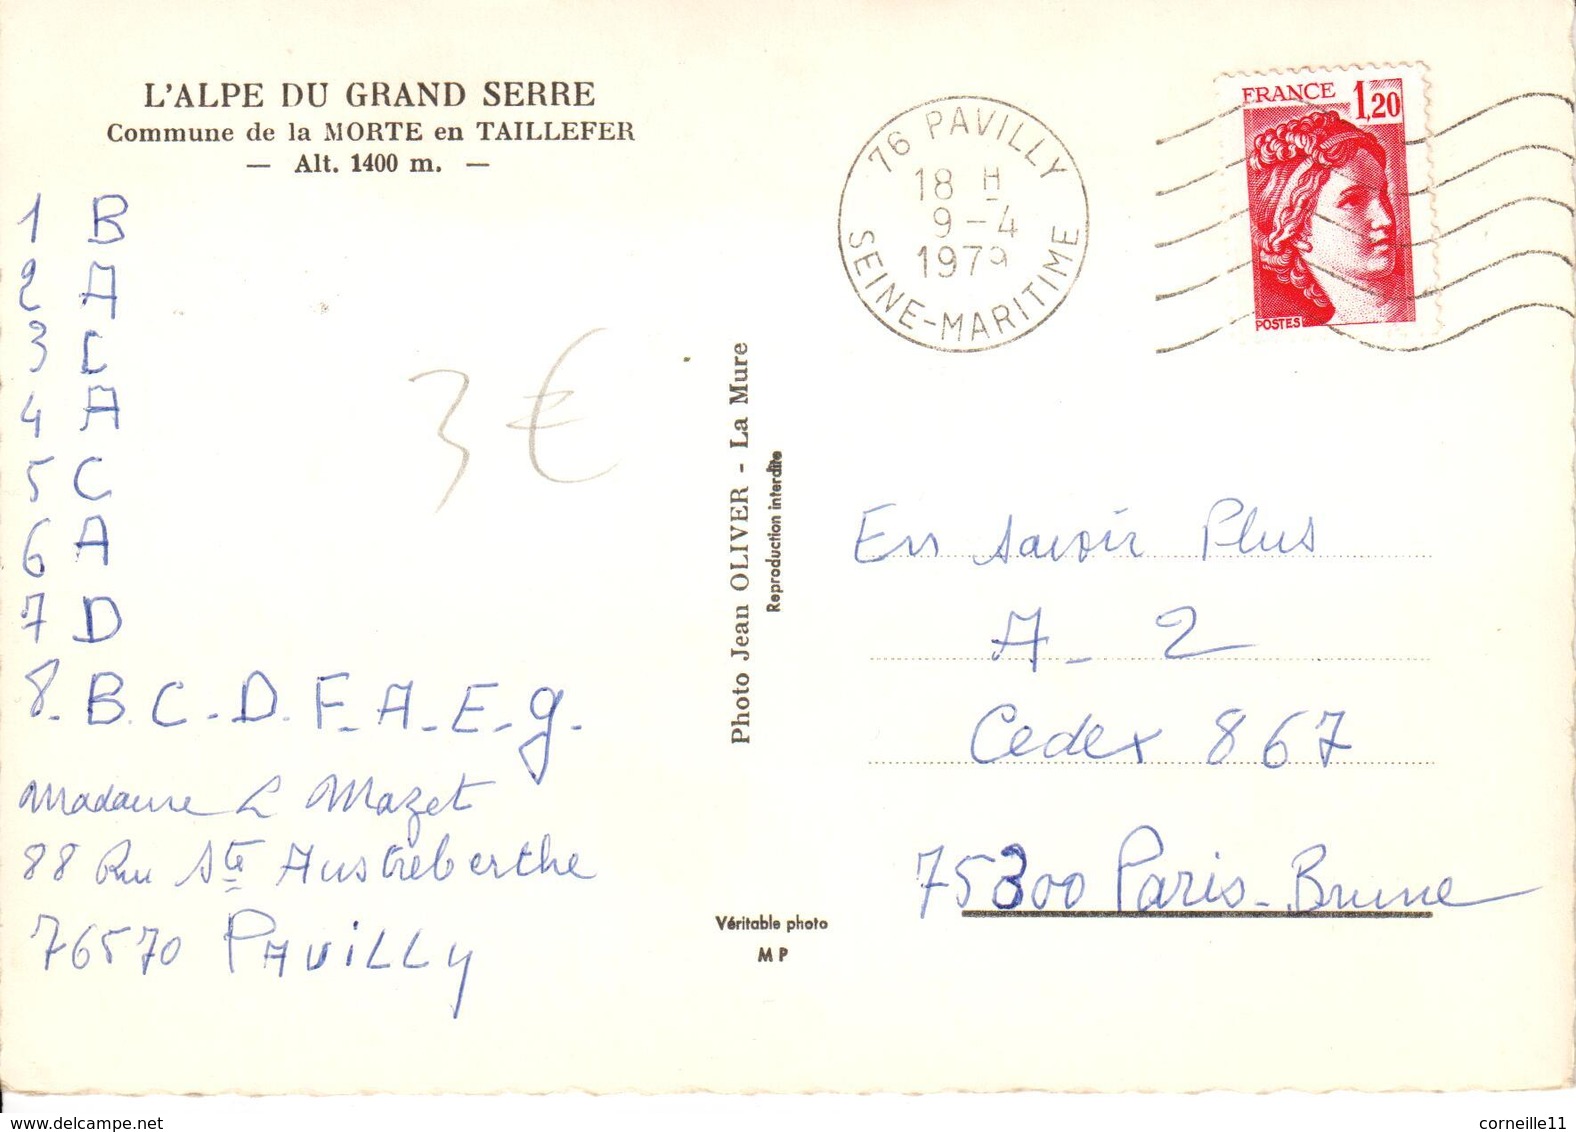 L'ALPE DU GRAND SERRE
Commune de la MORTE en TAILLEFER
— Alt. 1400 m. —
1 B
2 A
3 C
4 A
5 C
6 A
7 D
8. B. C. D. F. A. E. g.
Madame L Mazet
88 Rue Ste Austreberthe
76570 PAVILLY
3€
Photo Jean OLIVER - La Mure
Reproduction interdite
Véritable photo
M P
76 PAVILLY
18 H
9-4
1979
SEINE-MARITIME
FRANCE 1,20
POSTES
En savoir Plus
A-2
Cedex 867
75300 Paris-Brune
delcampe.net
corneille11